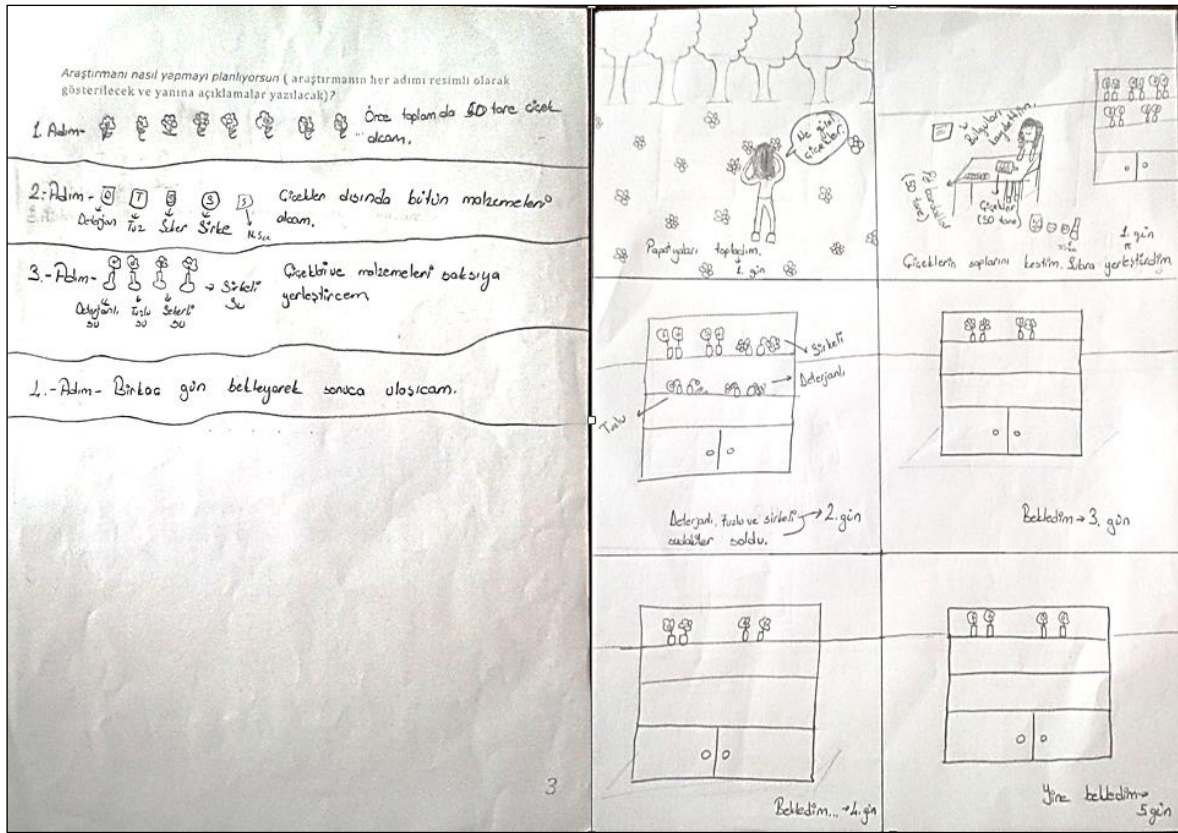 Araştırmanı nasıl yapmayı planlıyorsun ( araştırmanın her adımı resimli olarak
gösterilecek ve yanına açıklamalar yazılacak)?
1. Adım- Önce toplamda 50 tane çiçek
alcam.
2.-Adım- D T Ş S S Çiçekler dışında bütün malzemeleri
alcam.
Deterjan Tuz Şeker Sirke N.Su
3.-Adım- → Sirkeli
Su
Çiçekleri ve malzemeleri saksıya
yerleştircem
Deterjanlı su Tuzlu su Şekerli su
4.-Adım- Birkaç gün bekleyerek sonuca ulaşıcam.
3
Ne güzel
çiçekler.
Papatyaları topladım.
1. gün
Bulguları
kaydettim.
(50 tane)
Çiçekler
(50 tane)
1. gün
Çiçeklerin saplarını kestim. Suya yerleştirdim
Sirkeli
Deterjanlı
Tuzlu
Deterjanlı, tuzlu ve sirkeli → 2. gün
sudakiler soldu.
Bekledim → 3. gün
Bekledim... → 4. gün
Yine bekledim →
5. gün